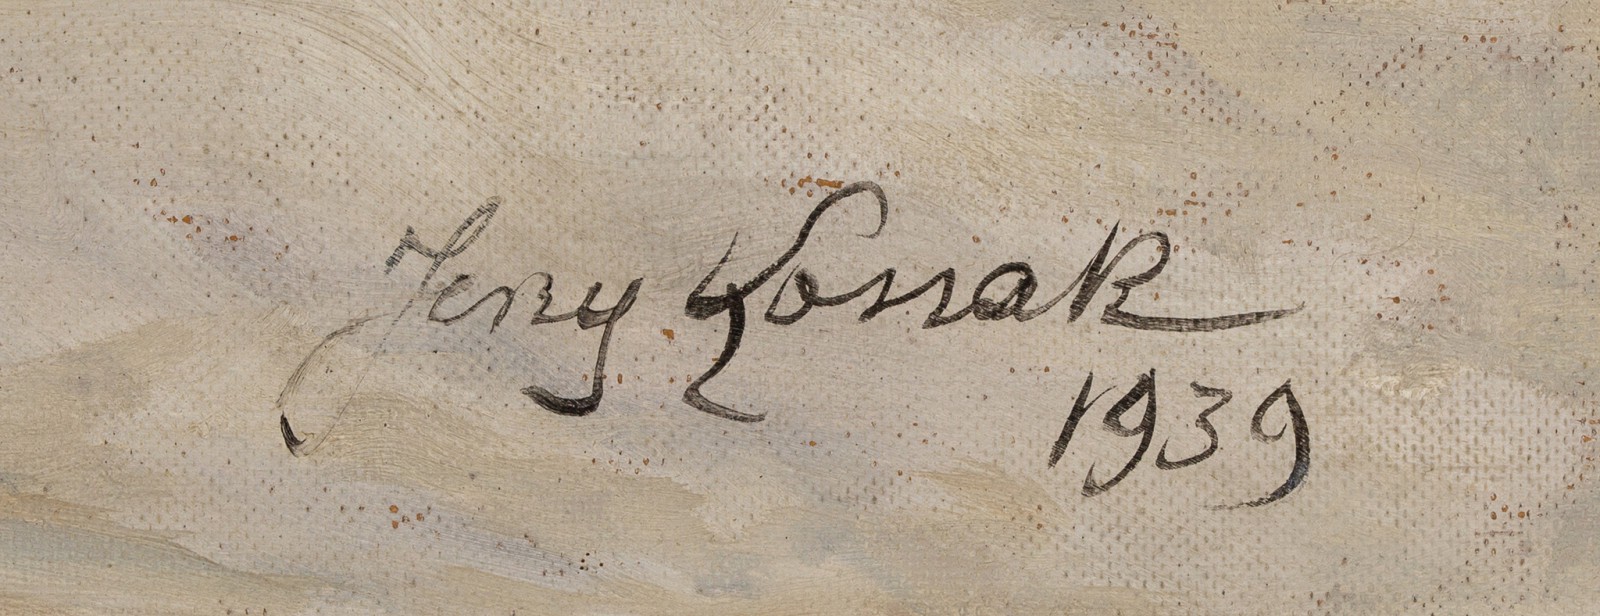 Jerzy Kossak
1939